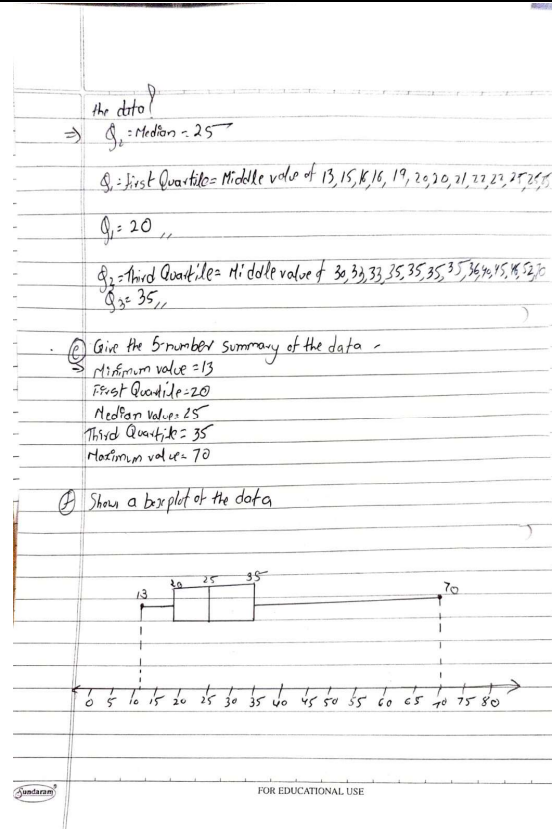 the data?
⇒ Q₂ = Median = 25
Q₁ = First Quartile = Middle value of 13, 15, 16, 16, 19, 20, 20, 21, 22, 22, 25, 25,
Q₁ = 20 ,,
Q₃ = Third Quartile = Middle value of 30, 33, 33, 35, 35, 35, 35, 36, 40, 45, 46, 52, 70
Q₃ = 35 ,,
(e) Give the 5-number summary of the data -
⇒ Minimum value = 13
First Quartile = 20
Median value = 25
Third Quartile = 35
Maximum value = 70
(f) Show a boxplot of the data
13 20 25 35 70
0 5 10 15 20 25 30 35 40 45 50 55 60 65 70 75 80
Sundaram
FOR EDUCATIONAL USE